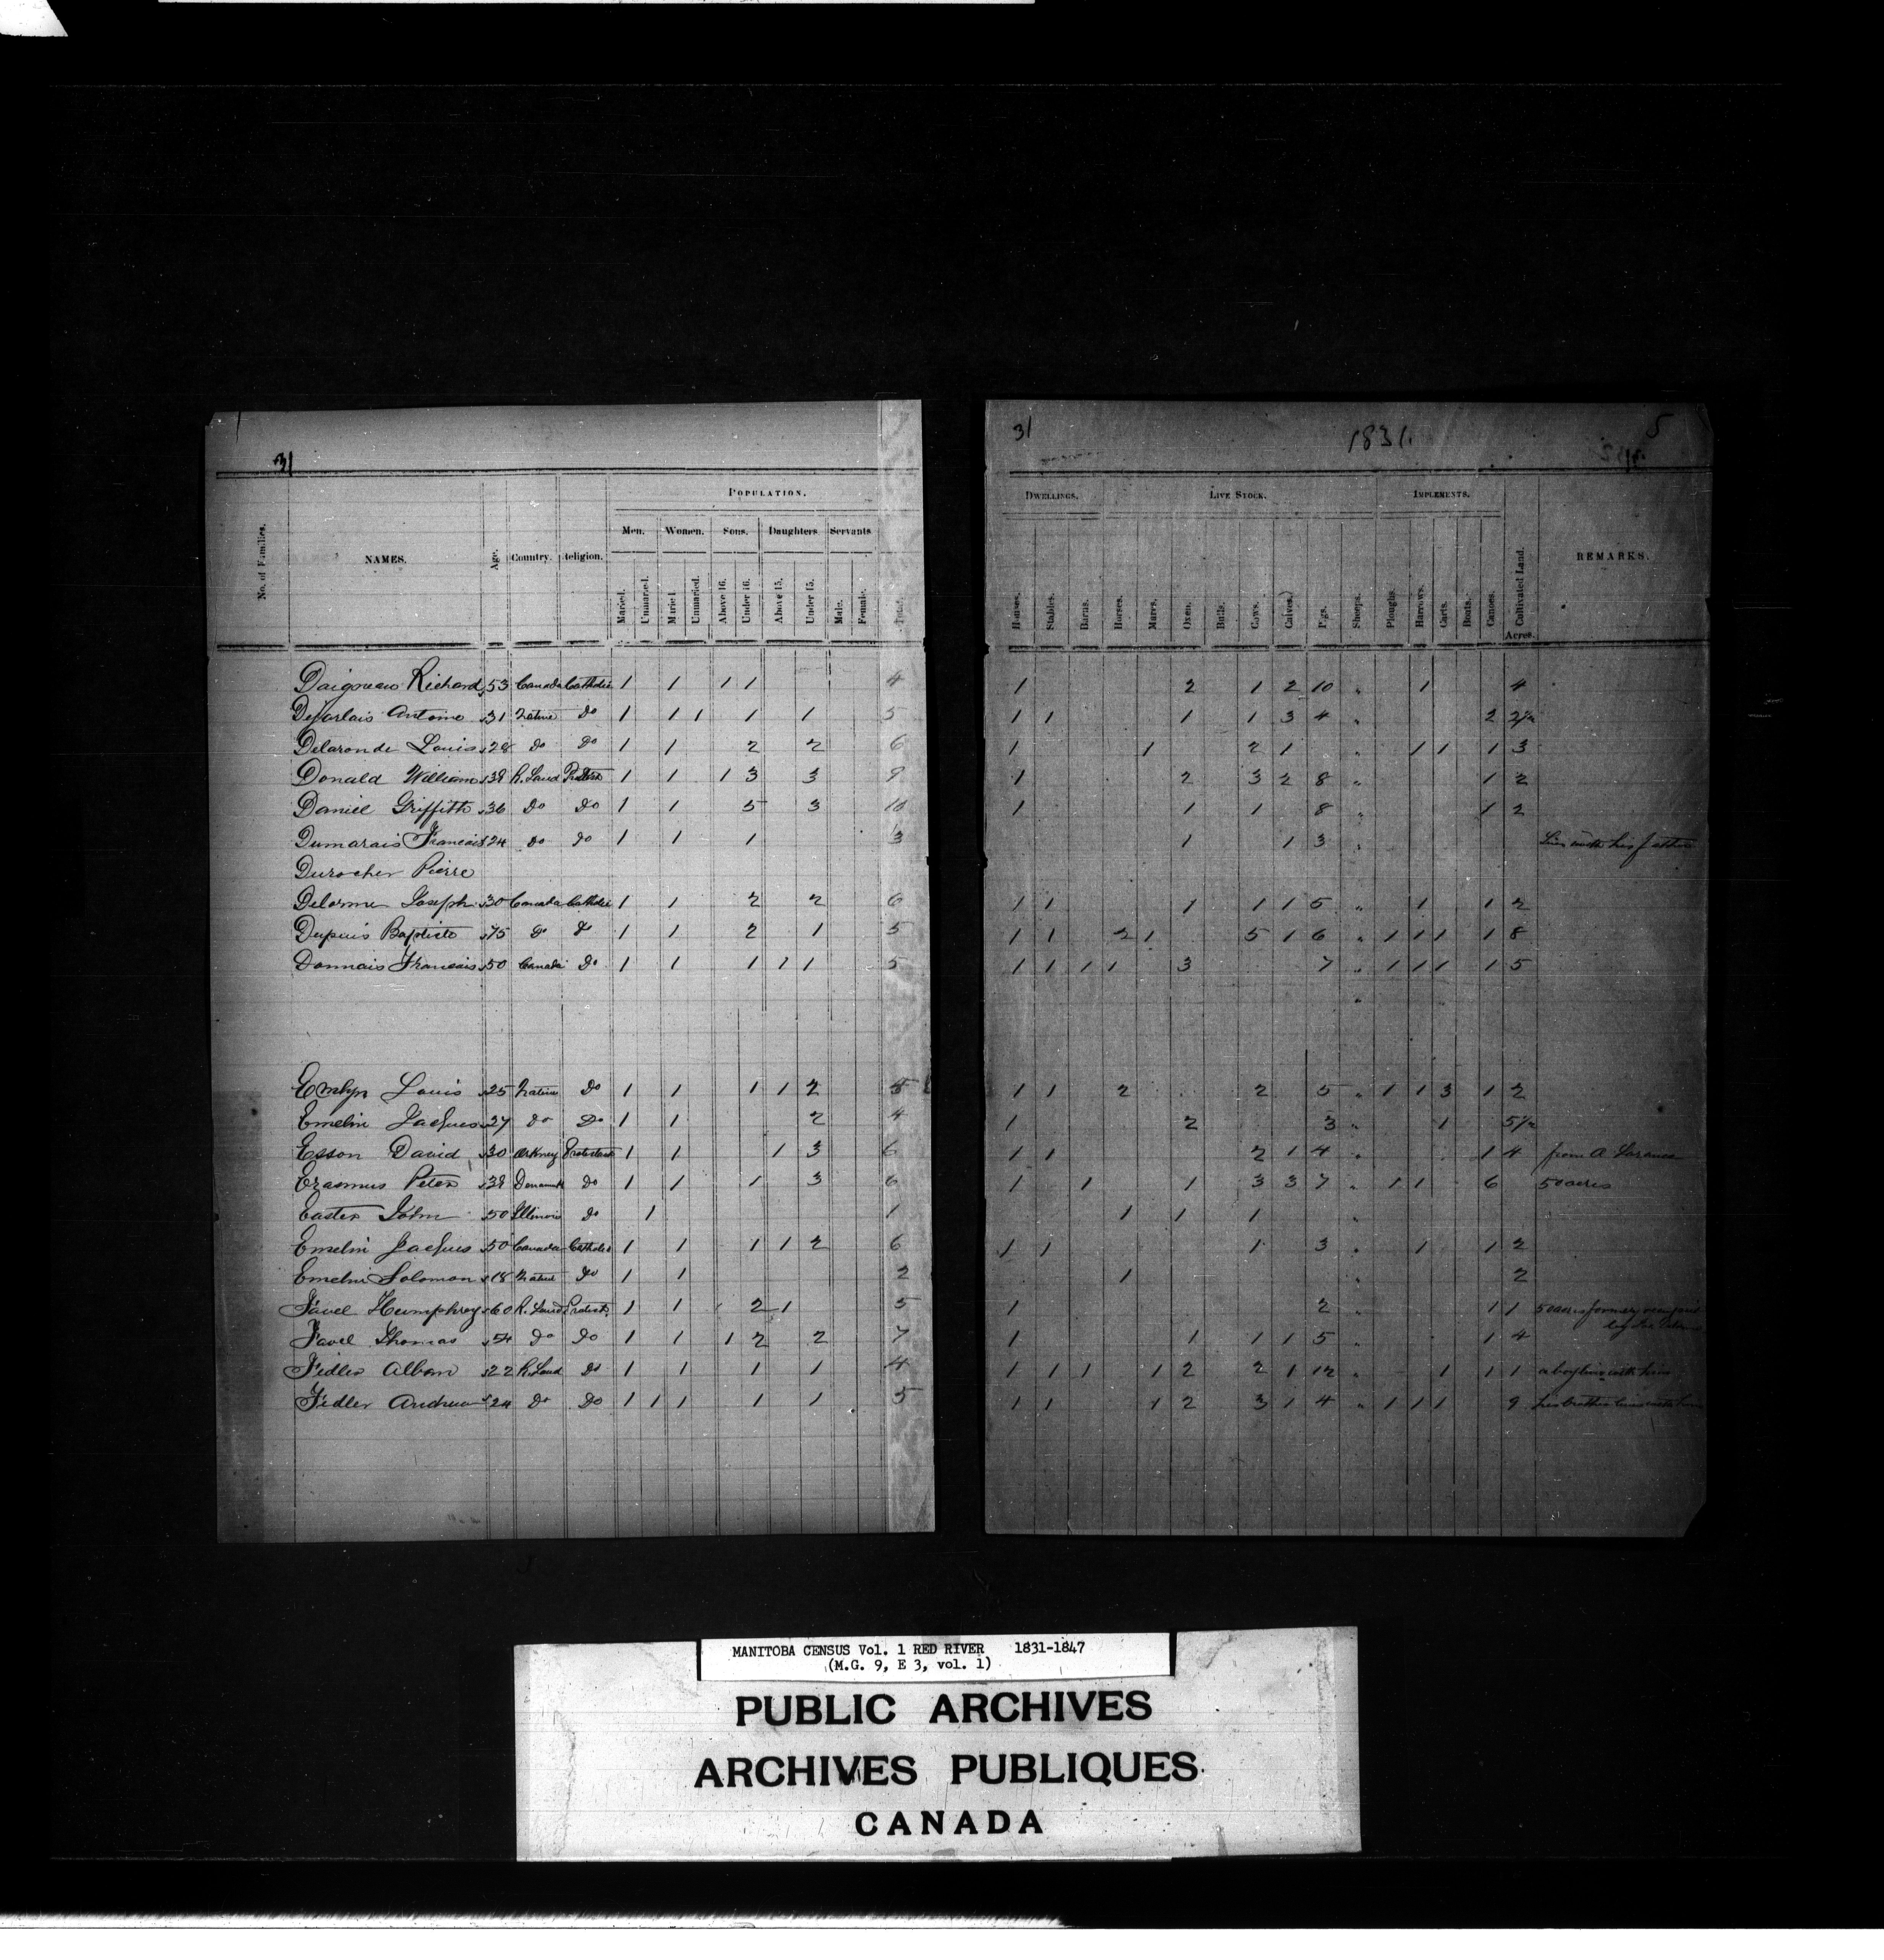 31
POPULATION.
Men. Women. Sons. Daughters Servants
No. of Families. NAMES. Age. Country. Religion. Married. Unmarried. Married. Unmarried. Above 16. Under 16. Above 15. Under 15. Male. Female. Total.
Daigneau Richard 53 Canada Catholic 1 1 1 1 4
Desjarlais Antoine 31 Native do 1 1 1 1 1 5
Delaronde Louis 28 do do 1 1 2 2 6
Donald William 38 R. Land 1 1 1 3 3 9
Daniel Griffith 36 do do 1 1 5 3 10
Dumarais Francais 24 do do 1 1 1 3
Durocher Pierre
Delorme Joseph 30 Canada Catholic 1 1 2 2 6
Dupuis Baptiste 75 do do 1 1 2 1 5
Donnais Francais 50 Canada Do 1 1 1 1 1 5
Louis 25 Native do 1 1 1 1 2
Emelin Jacques 27 do Do 1 1 2 4
Esson David 30 Orkney Protestant 1 1 1 3 6
Erasmus Peter 38 Denmark do 1 1 1 3 6
Easter John 50 Illinois do 1 1
Emelin Jacques 50 Canada Catholic 1 1 1 1 2 6
Emelin Solomon 18 Native do 1 1 2
Favel Humphrey 60 R. Land Protest. 1 1 2 1 5
Favel Thomas 54 do do 1 1 1 2 2 7
Fidler Alban 22 R. Land do 1 1 1 1 4
Fidler Andrew 24 do Do 1 1 1 1 1 5
31 1831. 5
DWELLINGS. LIVE STOCK. IMPLEMENTS.
Houses. Stables. Barns. Horses. Mares. Oxen. Bulls. Cows. Calves. Pigs. Sheeps. Ploughs. Harrows. Carts. Boats. Canoes. Cultivated Land. Acres. REMARKS.
1 2 1 2 10 " 1 4
1 1 1 1 3 4 " 2 2½
1 1 2 1 " 1 1 1 3
1 2 3 2 8 " 1 2
1 1 1 8 " 1 2
1 1 3 " Lives with his father
1 1 1 1 1 5 " 1 1 2
1 1 2 1 5 1 6 " 1 1 1 1 8
1 1 1 1 3 7 " 1 1 1 1 5
"
1 1 2 2 5 " 1 1 3 1 2
1 2 3 " 1 5½
1 1 2 1 4 " 1 4 from A
1 1 1 3 3 7 " 1 1 6 50 acres
1 1 1 "
1 1 1 3 " 1 1 2
1 " 2
1 2 " 1 1 50 acres
by
1 1 1 1 5 " 1 4
1 1 1 1 2 2 1 12 " 1 1 1 a boy lives with him
1 1 1 2 3 1 4 " 1 1 1 9 his brother lives with him
MANITOBA CENSUS Vol. 1 RED RIVER 1831-1847
(M.G. 9, E 3, vol. 1)
PUBLIC ARCHIVES
ARCHIVES PUBLIQUES
CANADA